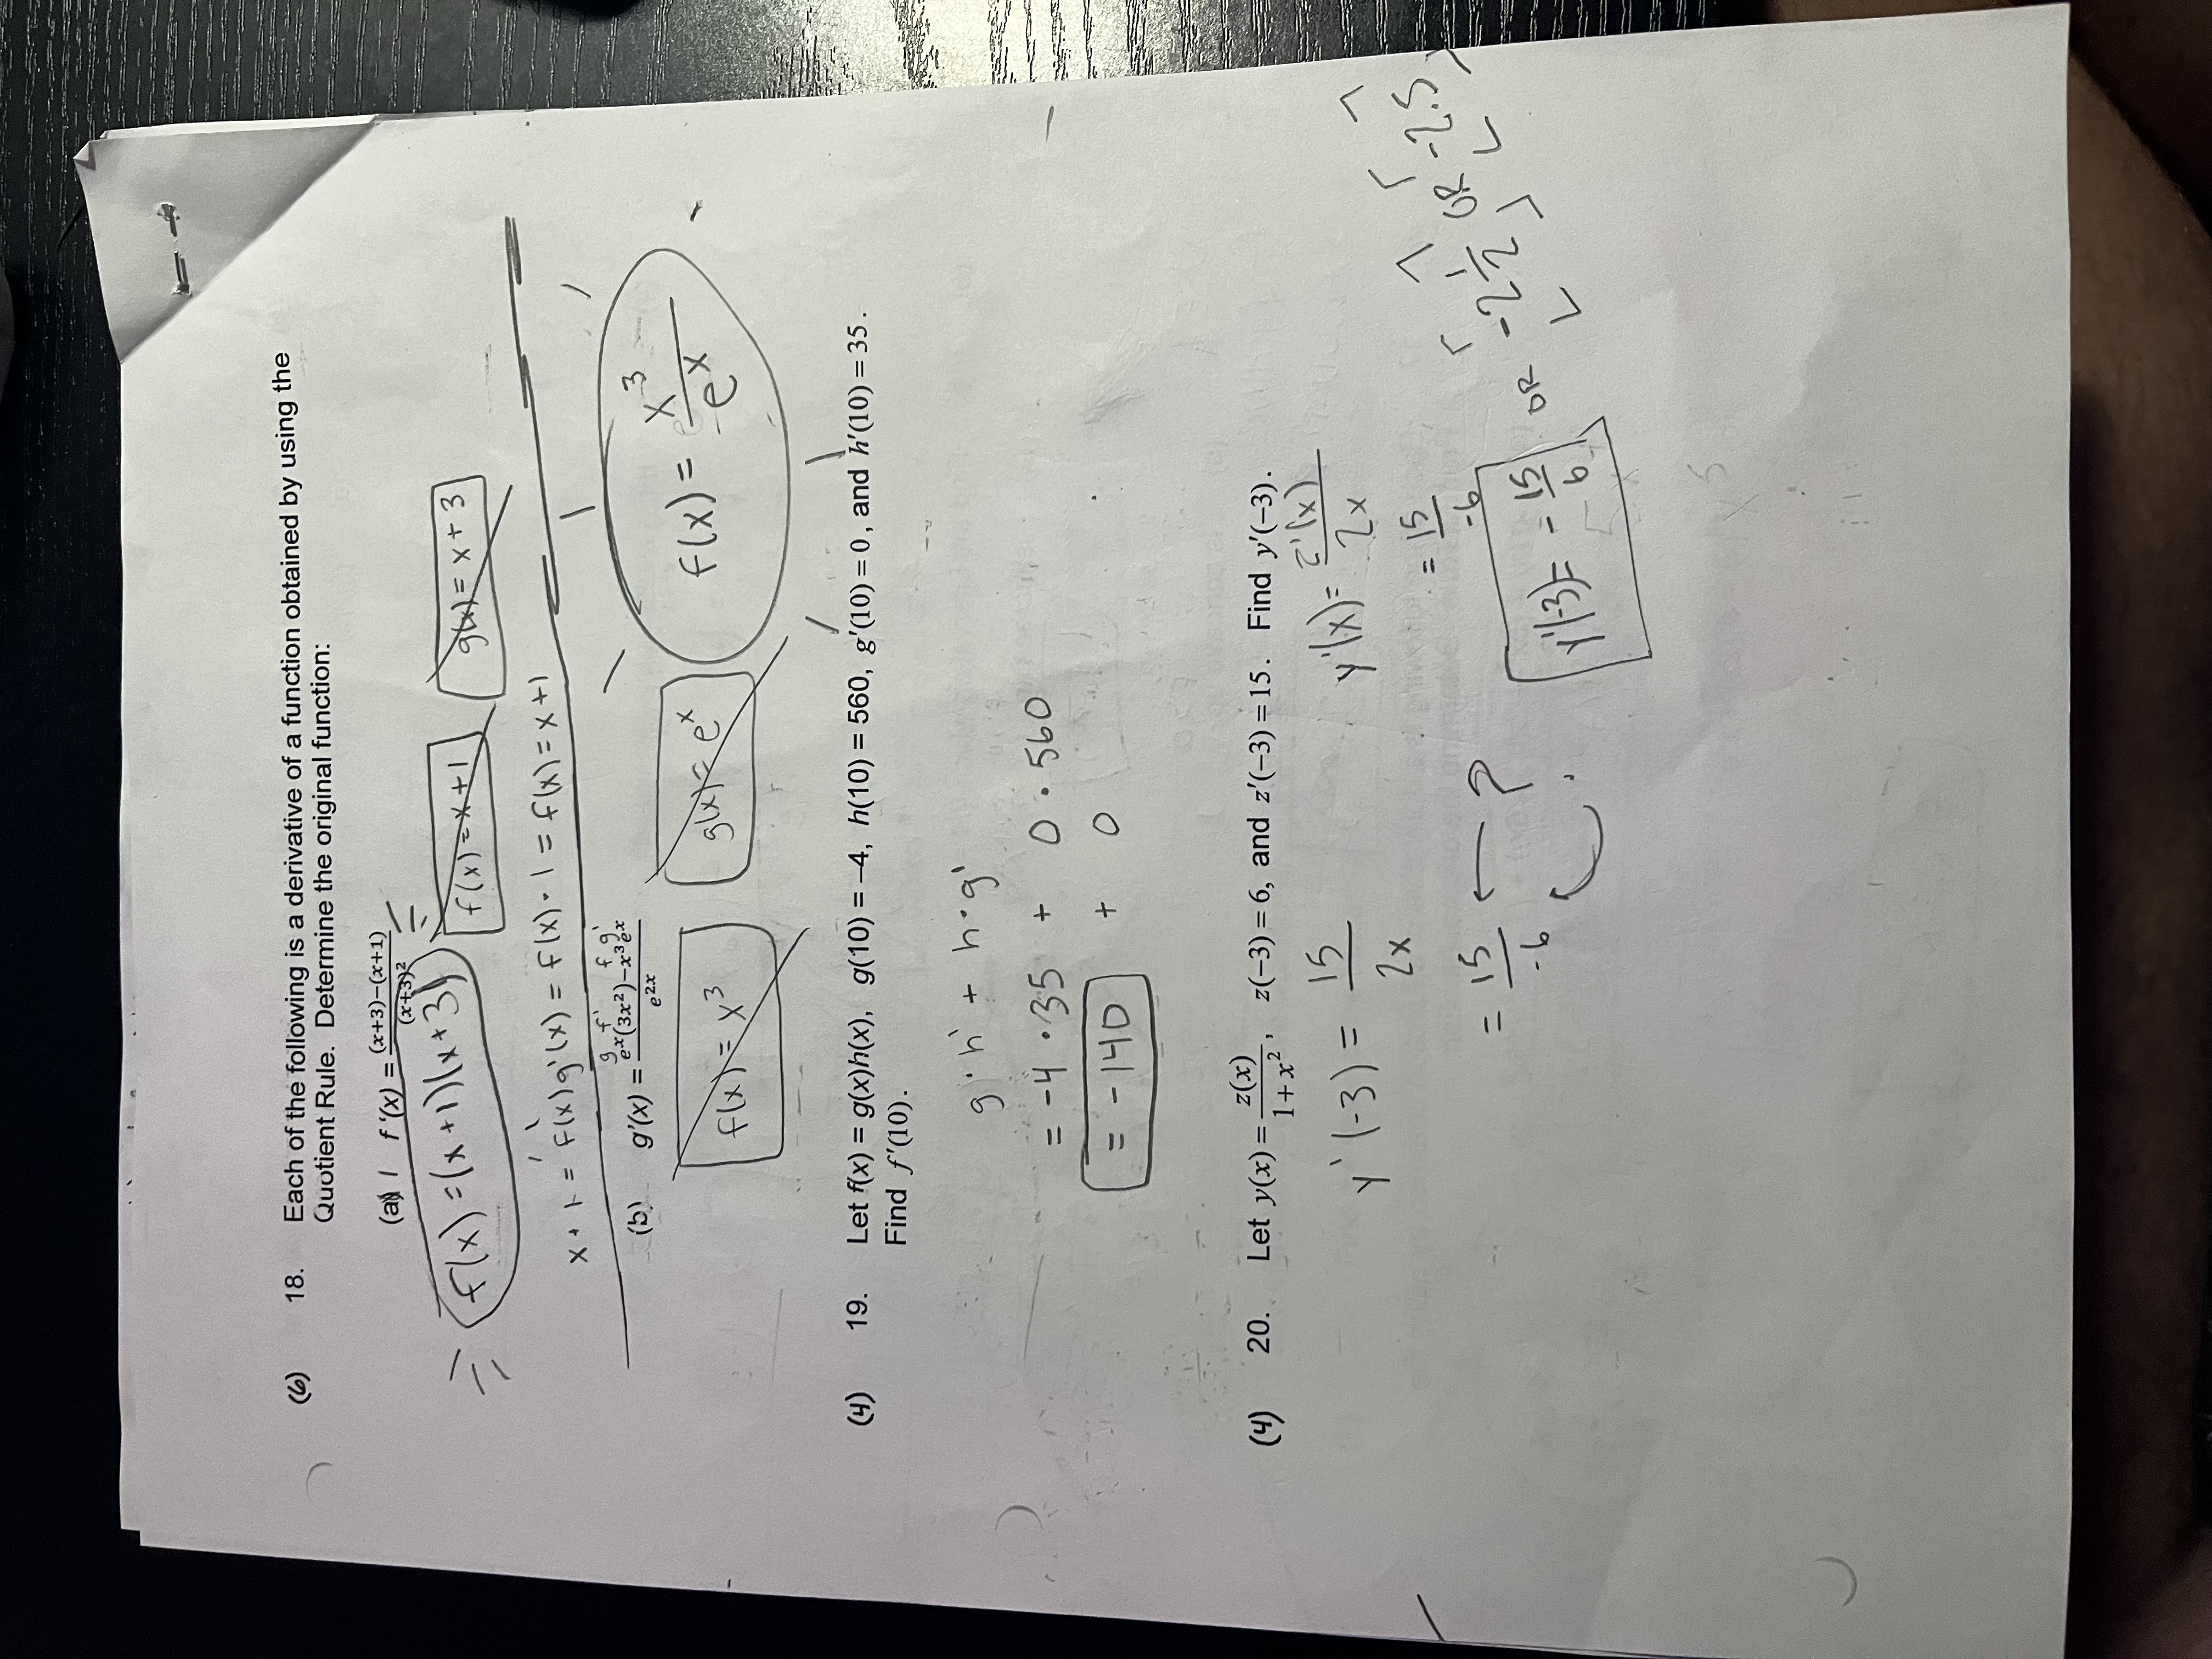 (6) 18. Each of the following is a derivative of a function obtained by using the
Quotient Rule. Determine the original function:
(a) f'(x) = \frac{(x+3)-(x+1)}{(x+3)^2}
f(x) = (x+1)(x+3) f(x) = x+1 g(x) = x+3
x + 1 = f(x)g'(x) = f(x) · 1 = f(x) = x+1
g f' f g'
(b) g'(x) = \frac{e^x(3x^2)-x^3e^x}{e^{2x}}
f(x) = x^3 g(x) = e^x f(x) = \frac{x^3}{e^x}
(4) 19. Let f(x) = g(x)h(x), g(10) = –4, h(10) = 560, g'(10) = 0, and h'(10) = 35.
Find f'(10).
g · h' + h · g'
= -4 · 35 + 0 · 560
= -140 + 0
(4) 20. Let y(x) = \frac{z(x)}{1+x^2}, z(−3) = 6, and z'(−3) = 15. Find y'(−3).
y'(-3) = \frac{15}{2x} y'(x) = \frac{z'(x)}{2x}
= \frac{15}{-6} ← ? = \frac{15}{-6}
y'(-3) = -\frac{15}{6} OR -2\frac{1}{2} OR -2.5